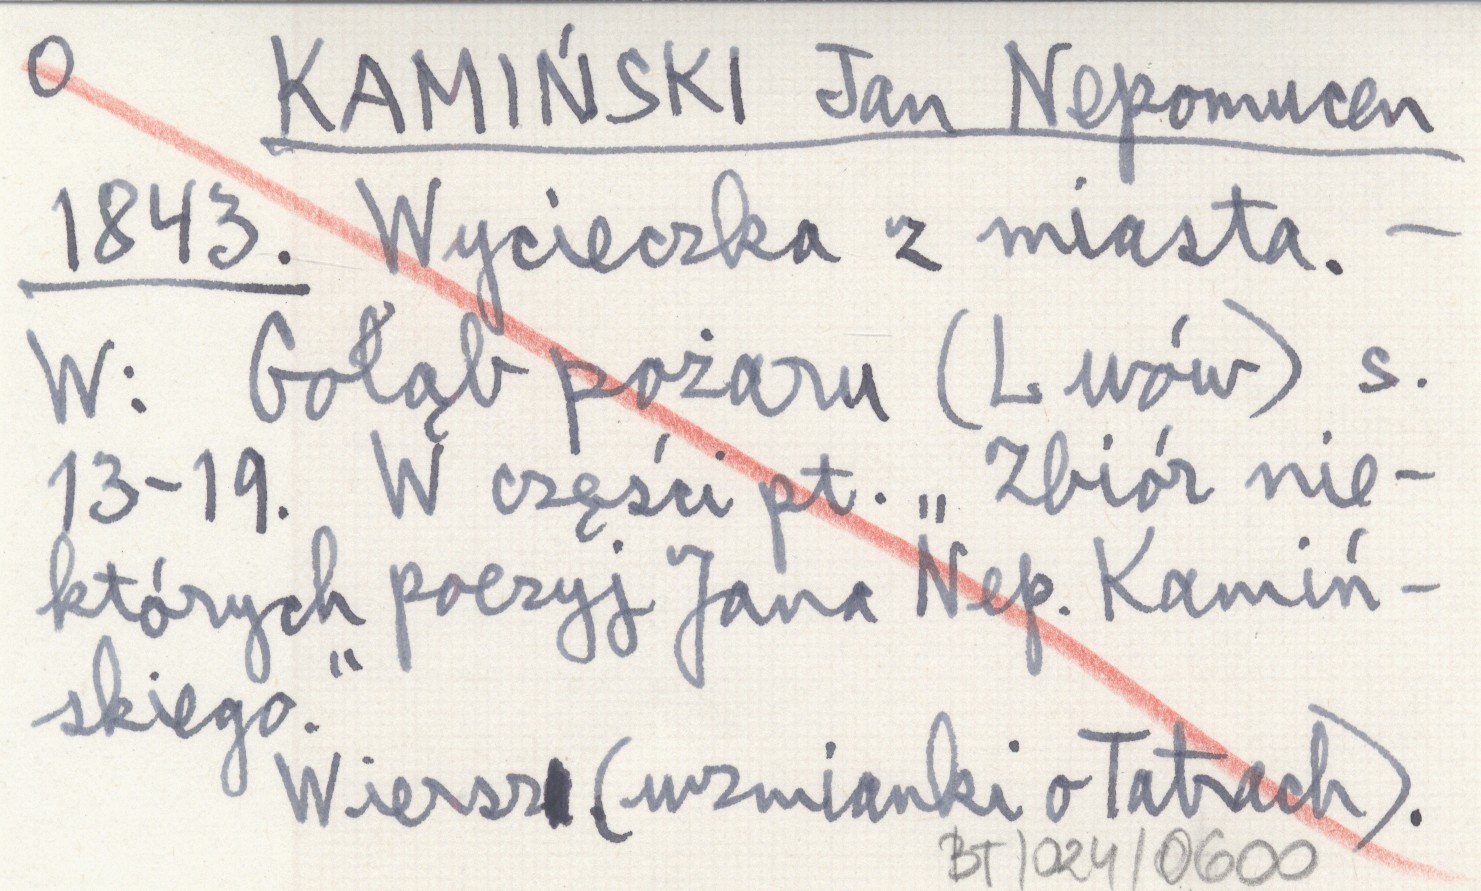 O KAMIŃSKI Jan Nepomucen
1843. Wycieczka z miasta. –
W: Gołąb pożaru (Lwów) s.
13-19. W części pt. „Zbiór nie-
których poezyj Jana Nep. Kamiń-
skiego."
Wiersz. (wzmianki o Tatrach).
BT/024/0600